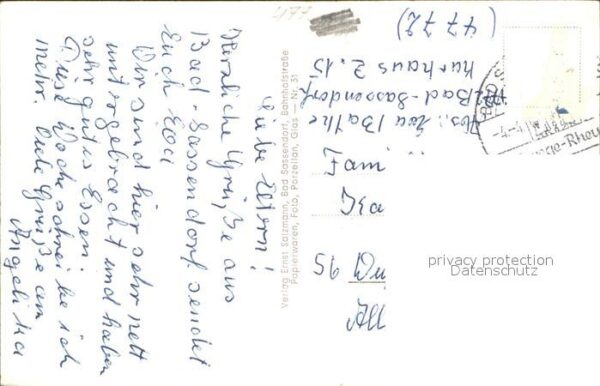 Liebe Eltern!
Herzliche Grüße aus
Bad-Sassendorf sendet
Euch Eva
Wir sind hier sehr nett
untergebracht und haben
sehr gutes Essen.
Diese Woche schreibe ich
mehr. Viele Grüße an
Angelika
Verlag Ernst Salzmann, Bad Sassendorf, Bahnhofstraße
Papierwaren, Foto, Porzellan, Glas — Nr. 31
477
Abs.: Eva Bathe
Bad-Sassendorf
Kurhaus 2.15
(4772)
Fam
95
privacy protection
Datenschutz